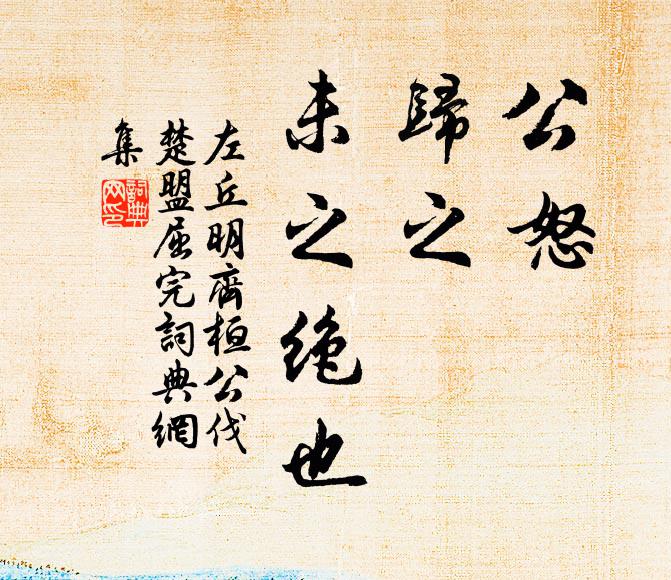 公怒
歸之
未之絶也
左丘明齊桓公伐
楚盟屈完詞典網
集
詞典
网印